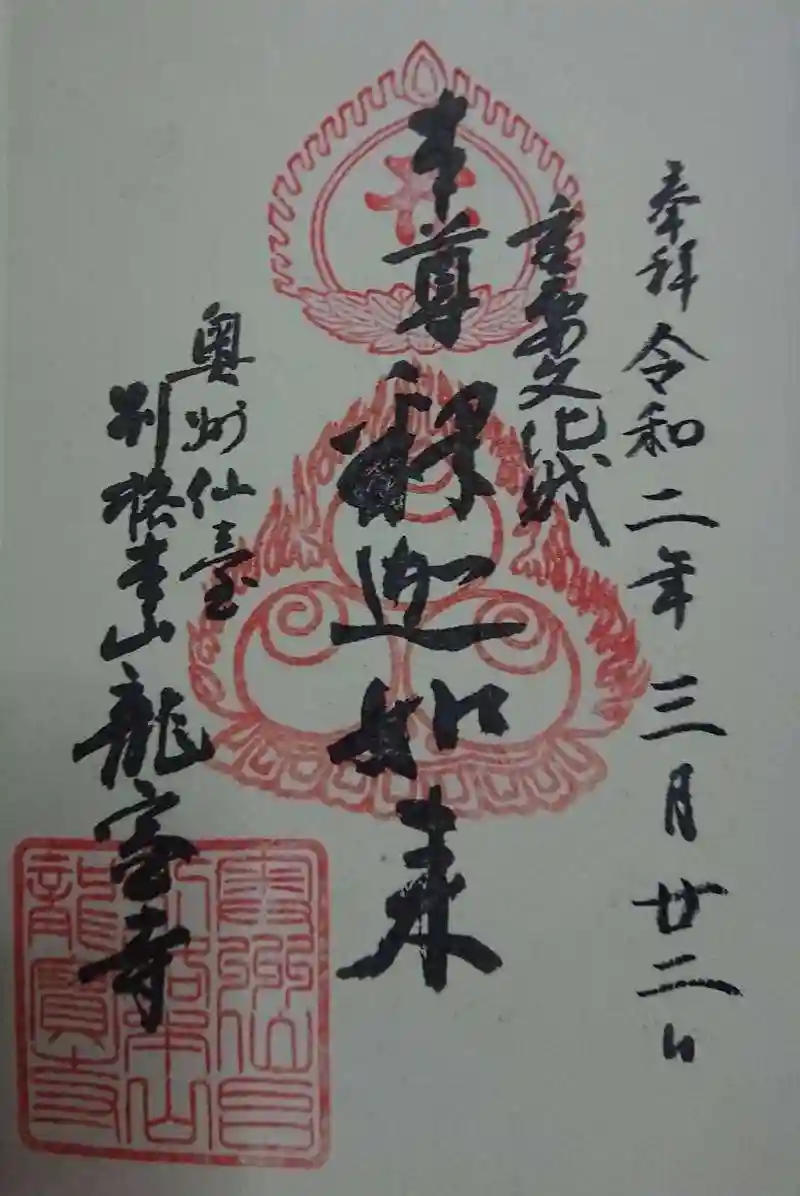 奉拝 令和二年三月廿二日
重要文化財
本尊 釋迦如来
奥州仙臺
別格本山 龍宝寺
奥州仙台
別格本山
龍寶寺